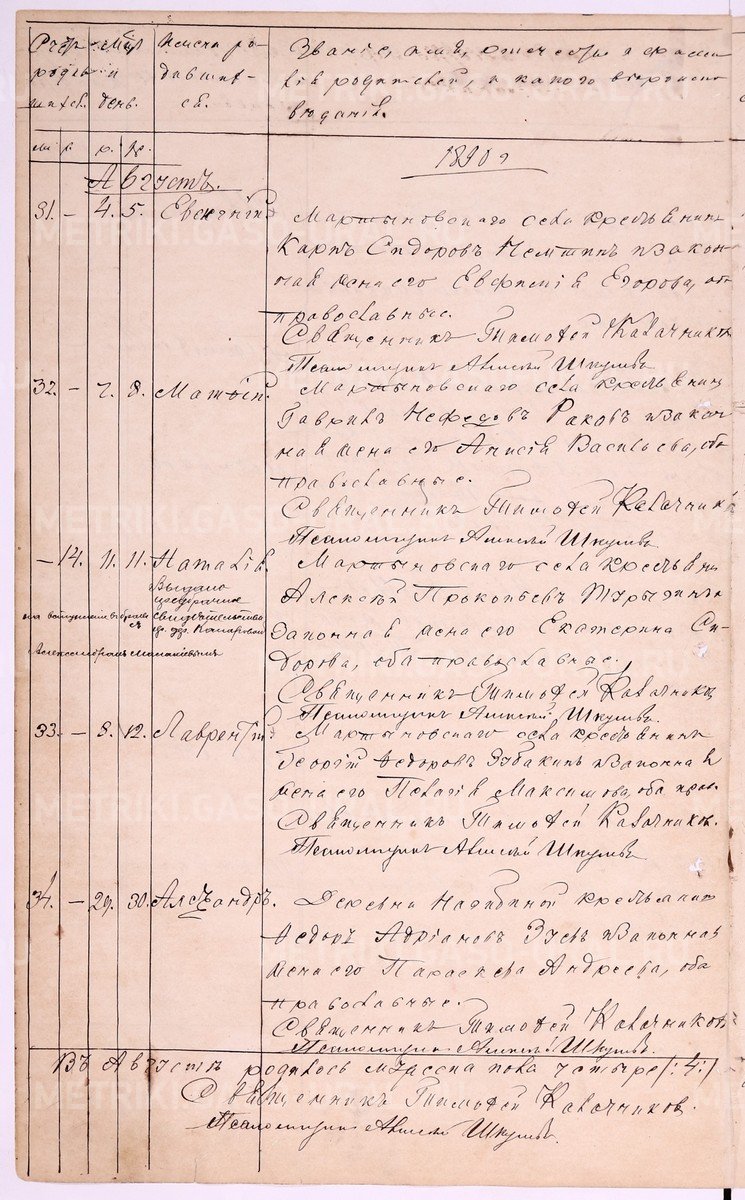 Счетъ Мѣс. Имена ро- Званіе, имя, отчество и фами-
родив- и дивших- лія родителей, и какого вѣроиспо-
шихся. день. ся. вѣданія.
м. ж. р. кр. 1890 г
Августъ.
31. – 4. 5. Евгеній. Мартыновскаго села крестьянинъ
Карпъ Сидоровъ и закон-
ная жена его Евфимія Егорова, оба
православные.
Священникъ Тимофей Калачников
Псаломщикъ Алексѣй Шкулевъ
32. – 7. 8. Матѳій. Мартыновскаго села крестьянинъ
Гавриилъ Нефедовъ Раковъ и закон-
ная жена его Анисія Васильева, оба
православные.
Священникъ Тимофей Калачников
Псаломщикъ Алексѣй Шкулевъ
– 14. 11. 11. Наталія. Мартыновскаго села крестьянинъ
Выдано Алексѣй Прокопьевъ
свидѣтельство законная жена его Екатерина Си-
дорова, оба православные.
Священникъ Тимофей Калачников
Псаломщикъ Алексѣй Шкулевъ.
33. – 8. 12. Лаврентій Мартыновскаго села крестьянинъ
Георгій Ѳедоровъ и законная
жена его Пелагія Максимова, оба прав.
Священникъ Тимофей Калачников.
Псаломщикъ Алексѣй Шкулевъ
34. – 29. 30. Александръ. Деревни крестьянин
Ѳедоръ Адріановъ Зуевъ и законная
жена его Параскева Андреева, оба
православные.
Священникъ Тимофей Калачников
Псаломщикъ Алексѣй Шкулевъ.
Въ Августѣ родилось муж. пола четыре /: 4 :/
Священникъ Тимофей Калачников.
Псаломщикъ Алексѣй Шкулевъ.